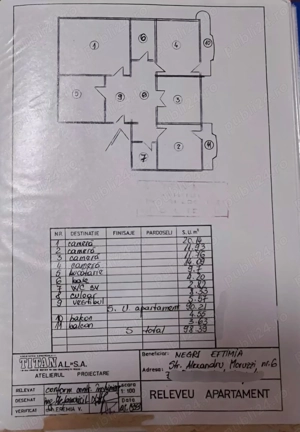 1
6
4
10
5
9
10
3
7
2
11
NR DESTINATIE FINISAJE PARDOSELI S.U. m²
1 cameră 20.14
2 cameră 11.93
3 cameră 11.96
4 cameră 14.09
5 bucatarie 9.7
6 baie 4.20
7 WC SV 2.10
8 culoar 8.33
9 vestibul 5.57
S. U apartament 90.21
10 balcon 4.55
11 balcon 3.63
S total 98.39
TITAN AL-S.A.
ATELIERUL PROIECTARE
Beneficiar: NEGRI EFTIMIA
Adresa: Str. Alexandru Moruzzi, nr. 6
RELEVAT
DESENAT
VERIFICAT
Scara
1:100
Data
RELEVEU APARTAMENT